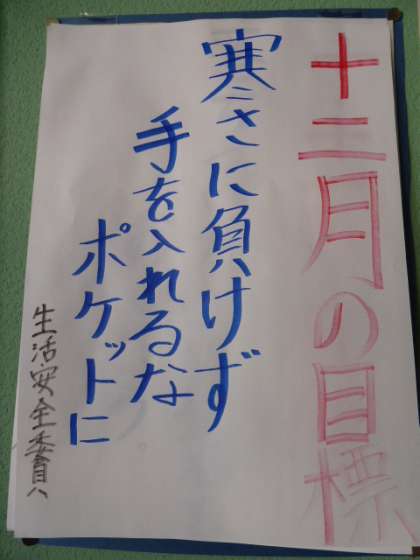 十二月の目標
寒さに負けず
手を入れるな
ポケットに
生活安全委員